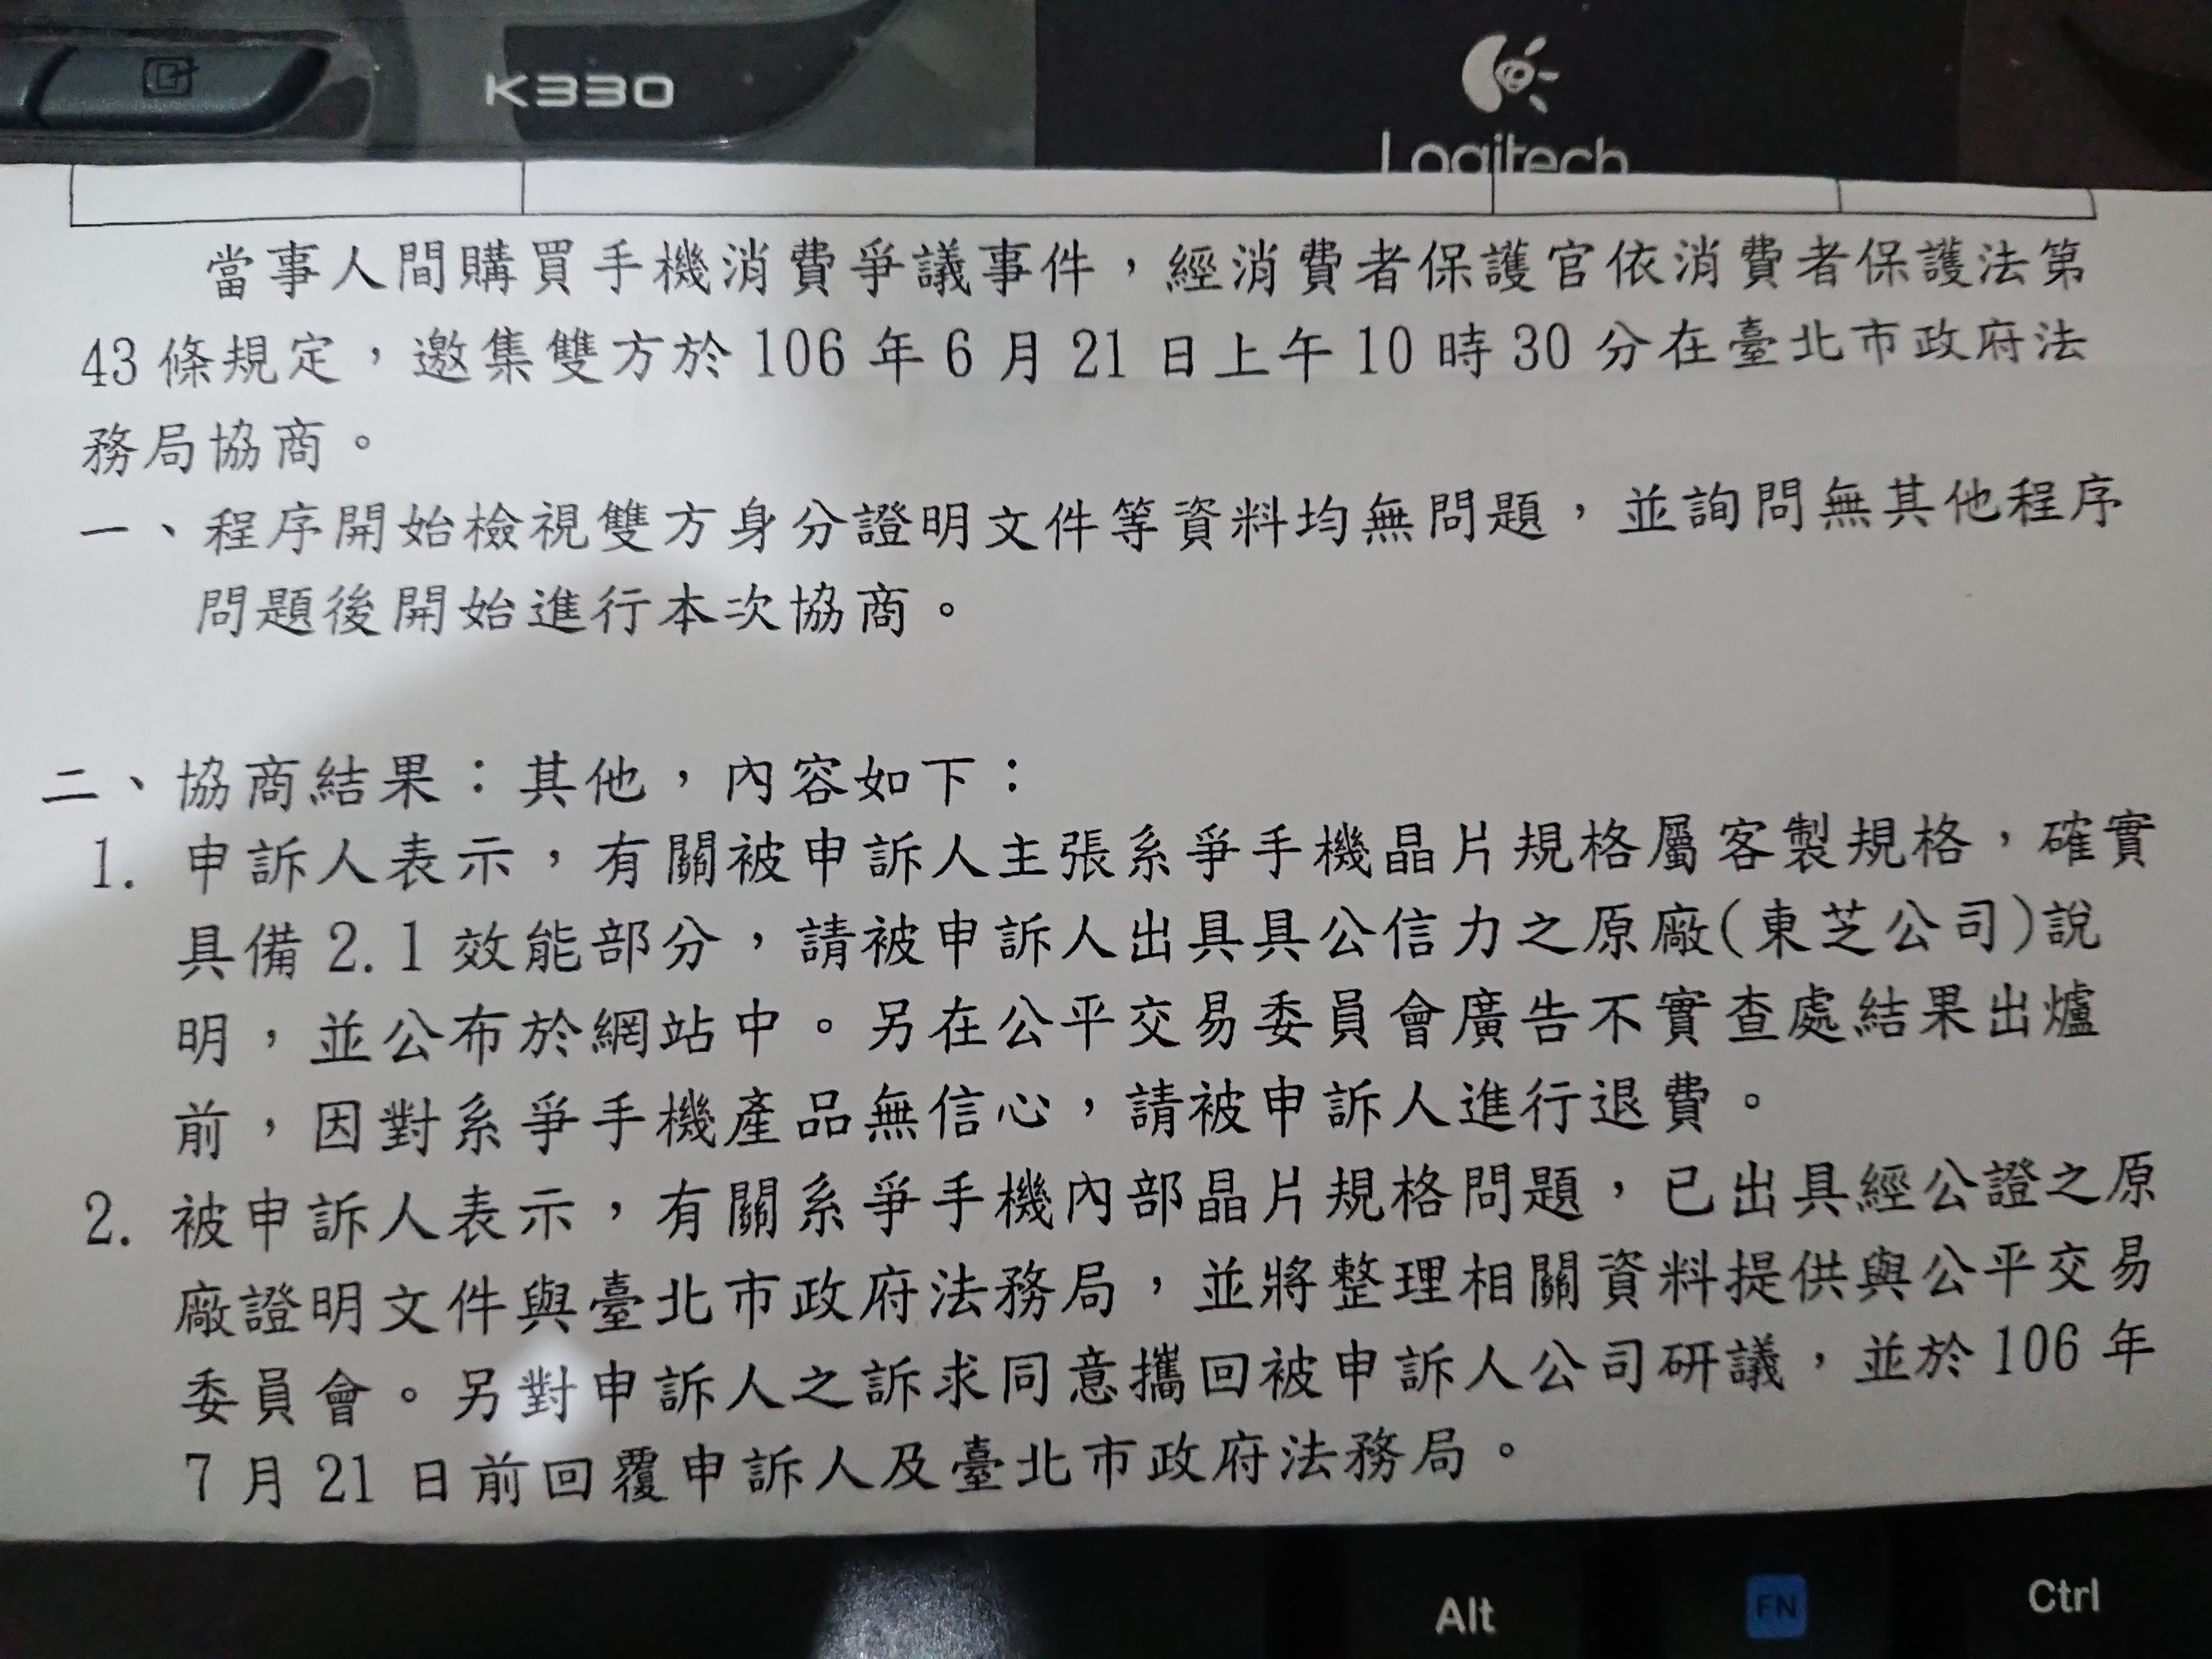 K330
Logitech
當事人間購買手機消費爭議事件，經消費者保護官依消費者保護法第
43條規定，邀集雙方於106年6月21日上午10時30分在臺北市政府法
務局協商。
一、程序開始檢視雙方身分證明文件等資料均無問題，並詢問無其他程序
問題後開始進行本次協商。
二、協商結果：其他，內容如下：
1. 申訴人表示，有關被申訴人主張系爭手機晶片規格屬客製規格，確實
具備2.1效能部分，請被申訴人出具具公信力之原廠(東芝公司)說
明，並公布於網站中。另在公平交易委員會廣告不實查處結果出爐
前，因對系爭手機產品無信心，請被申訴人進行退費。
2. 被申訴人表示，有關系爭手機內部晶片規格問題，已出具經公證之原
廠證明文件與臺北市政府法務局，並將整理相關資料提供與公平交易
委員會。另對申訴人之訴求同意攜回被申訴人公司研議，並於106年
7月21日前回覆申訴人及臺北市政府法務局。
Alt FN Ctrl